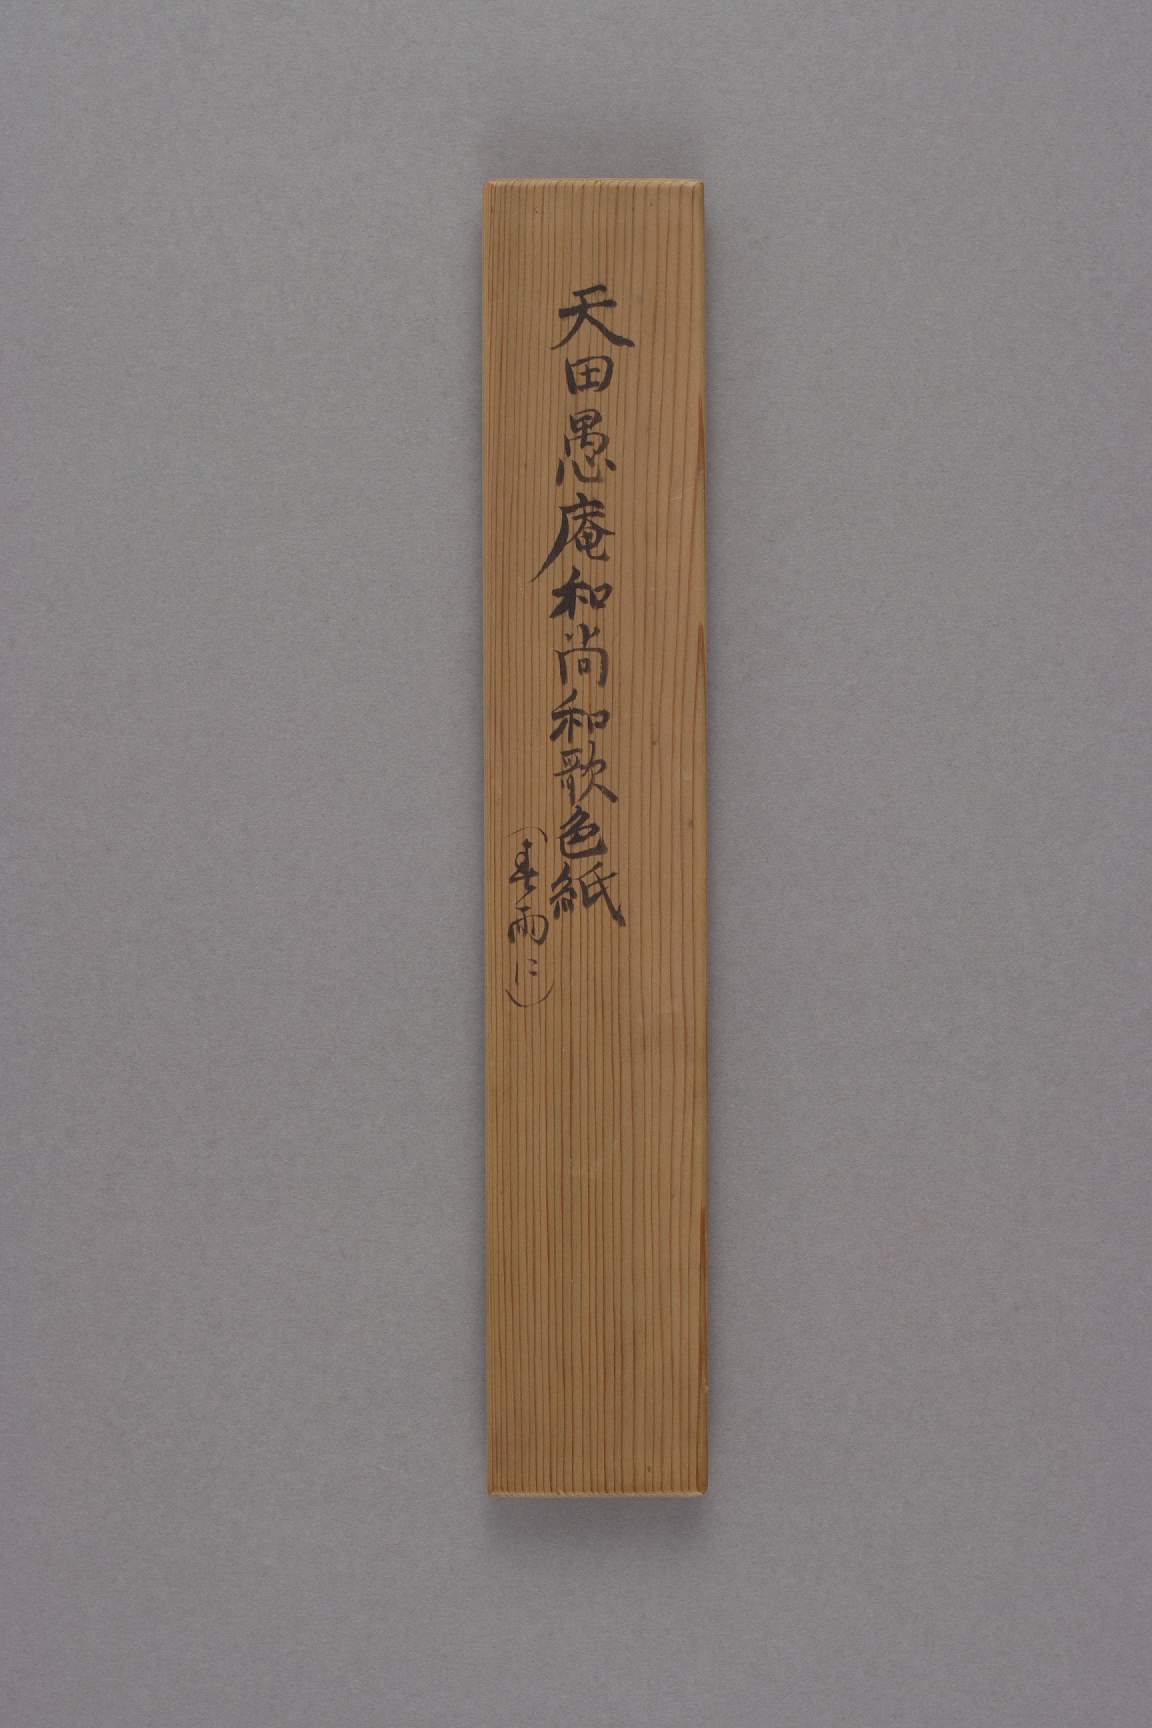 天田愚庵和尚和歌色紙
（春雨に）